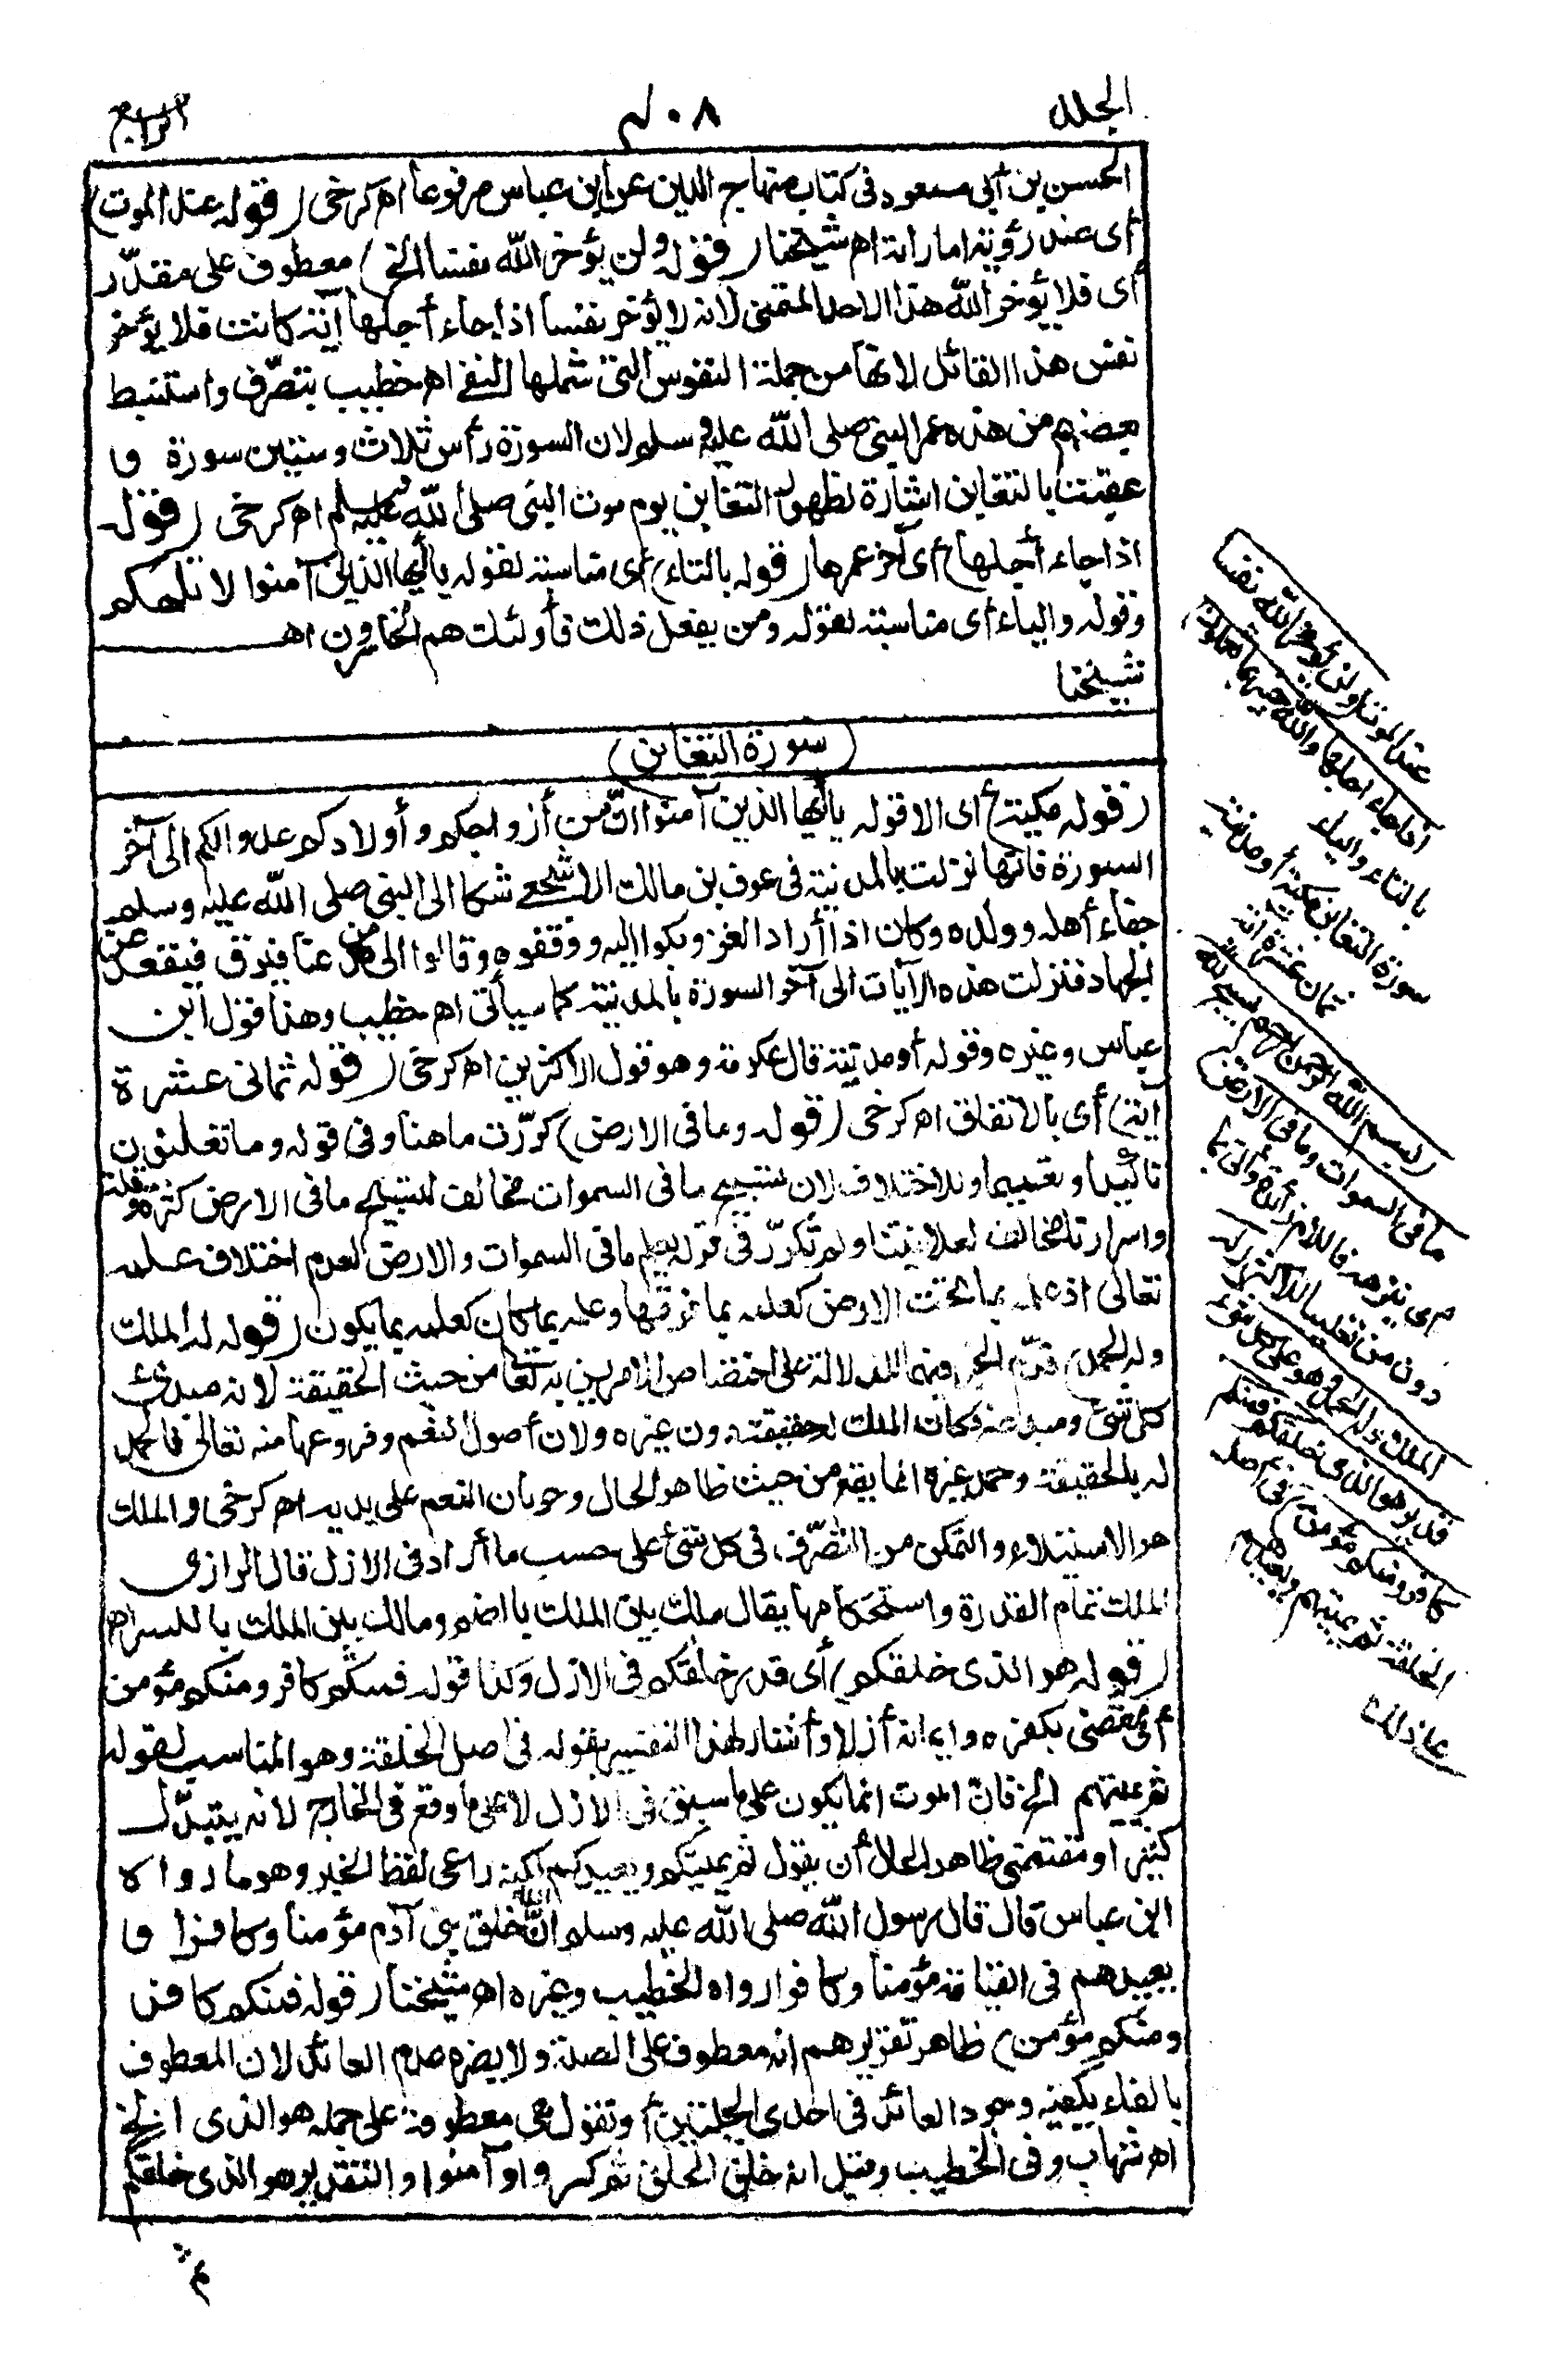 الجلد
٤٠٨
الرابع
الحسن بن أبى مسعود فى كتاب منهاج الدين عن ابن عباس مرفوعا اه كرخى (قوله عند الموت)
أى عند رؤية اماراته اه شيخنا (قوله ولن يؤخر الله نفسا الخ) معطوف على مقدّر
أى فلا يؤخر الله هذا الاحد المتمنى لانه لا يؤخر نفسا اذا جاء أجلها آية كانت فلا يؤخر
نفس هذا القائل لانها من جملة النفوس التى شملها النفى اه خطيب بتصرّف واستنبط
بعضهم من هذه عمر النبى صلى الله عليه وسلم لان السورة رأس ثلاث وستين سورة و
عقبت بالتغابن اشارة لظهور التغابن يوم موت النبى صلى الله عليه وسلم اه كرخى (قوله
اذا جاء أجلها) أى آخر عمرها (قوله بالتاء) أى مناسبة لقوله يا أيها الذين آمنوا لا تلهكم
وقوله والياء أى مناسبة لقوله ومن يفعل ذلك فأولئك هم الخاسرون اه
شيخنا
(سورة التغابن)
(قوله مكية) أى الا قوله يا أيها الذين آمنوا انّ من أزواجكم وأولادكم عدوا لكم الى آخر
السورة فانها نزلت بالمدينة فى عوف بن مالك الاشجعى شكا الى النبى صلى الله عليه وسلم
جفاء أهله وولده وكان اذا أراد الغزو بكوا اليه ووقفوه وقالوا الى من تدعنا فيرق فيقعد عن
الجهاد فنزلت هذه الآيات الى آخر السورة بالمدينة كما سيأتى اه خطيب وهذا قول ابن
عباس وغيره وقوله أو مدنية قال عكرمة وهو قول الاكثرين اه كرخى (قوله ثمانى عشرة
آية) أى بالاتفاق اه كرخى (قوله وما فى الارض) كرّرت ما هنا وفى قوله وما تعلنون
تأكيدا وتعميما وللاختلاف لان تسبيح ما فى السموات مخالف لتسبيح ما فى الارض كثرة وقلة
واسرارنا مخالف لعلانيتنا ولم تكرّر فى قوله يعلم ما فى السموات والارض لعدم اختلاف علمه
تعالى اذ علمه بما تحت الارض كعلمه بما فوقها وعلمه بما كان كعلمه بما يكون (قوله له الملك
وله الحمد) قدّم الخبر فيهما للدلالة على اختصاص الامرين به تعالى من حيث الحقيقة لانه مبدئ
كل شئ ومبدعه فكان الملك له حقيقة دون غيره ولان أصول النعم وفروعها منه تعالى فالحمد
له بالحقيقة وحمد غيره انما يقع من حيث ظاهر الحال وجريان النعم على يديه اه كرخى والملك
هو الاستيلاء والتمكن من التصرّف فى كل شئ على حسب ما أراد فى الازل قال الرازى
الملك تمام القدرة واستحكامها يقال ملك بين الملك بالضم ومالك بين الملك بالكسر اه
(قوله هو الذى خلقكم) أى قدر خلقكم فى الازل وكذا قوله فمنكم كافر ومنكم مؤمن
أى مقضى بكفره وايمانه أزلا وأشار لهذا التفسير بقوله فى اصل الخلقة وهو المناسب لقوله
ثم يميتهم الخ فان الموت انما يكون على ما سبق فى الازل لا على ما وقع فى الخارج لانه يتبدّل
كثيرا ومقتضى ظاهر الحال أن يقول ثم يميتكم ويعيدكم لكنه راعى لفظ الخبر وهو ما رواه
ابن عباس قال قال رسول الله صلى الله عليه وسلم انّ الله خلق بنى آدم مؤمنا وكافرا و
يعيدهم فى القيامة مؤمنا وكافرا رواه الخطيب وغيره اه شيخنا (قوله فمنكم كافر
ومنكم مؤمن) ظاهر تقريرهم انه معطوف على الصلة ولا يضره عدم العائد لان المعطوف
بالفاء يكفيه وجود العائد فى احدى الجملتين أو تقول هى معطوفة على جملة هو الذى الخ
اه شهاب وفى الخطيب وقيل انه خلق الخلق ثم كفروا وآمنوا والتقدير هو الذى خلقكم
عند الموت ولن يؤخر الله نفسا
اذا جاء اجلها والله خبير بما تعملون
بالتاء والياء
سورة التغابن مكية أو مدنية
ثمان عشرة آية
بسم الله الرحمن الرحيم يسبح لله
ما فى السموات وما فى الارض
اى ينزهه فاللام زائدة وأتى بما
دون من تغليبا للاكثر له
الملك وله الحمد وهو على كل شئ
قدير هو الذى خلقكم فمنكم
كافر ومنكم مؤمن فى اصل
الخلقة ثم يميتهم ويعيدهم
على ذلك